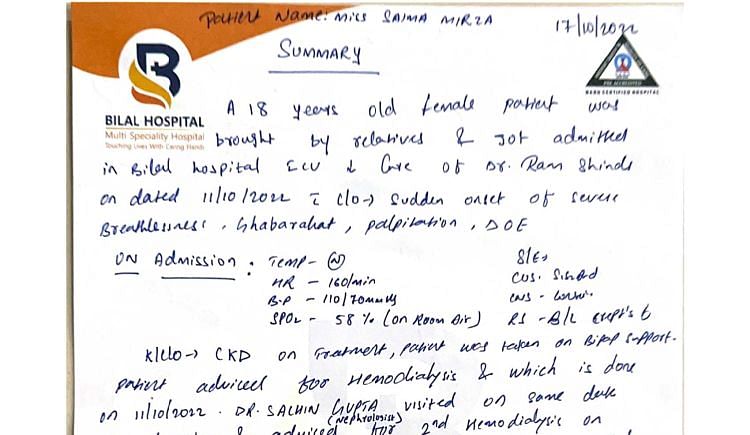 Patient Name: Miss SAIMA MIRZA
17/10/2022
SUMMARY
BILAL HOSPITAL
Multi Speciality Hospital
Touching Lives With Caring Hands
PRE ACCREDITED
NABH CERTIFIED HOSPITAL
A 18 years old female patient was
brought by relatives & got admitted
in Bilal hospital ICU Care of Dr. Ram Shinde
on dated 11/10/2022 c̄ c/o→ Sudden onset of severe
Breathlessness, Ghabarahat, palpitation, DOE
ON Admission: Temp - (N) S/E:
HR - 160/min CVS. S1S2
B.P - 110/70mmHg CNS -
SPO2 - 58 % (on Room Air) RS - B/L crept's +
K/C/O→ CKD on Treatment, patient was taken on Bipap support.
patient adviced for Hemodialysis & which is done
on 11/10/2022. DR. SACHIN GUPTA visited on same date
(Nephrologist)
& adviced for 2nd Hemodialysis on